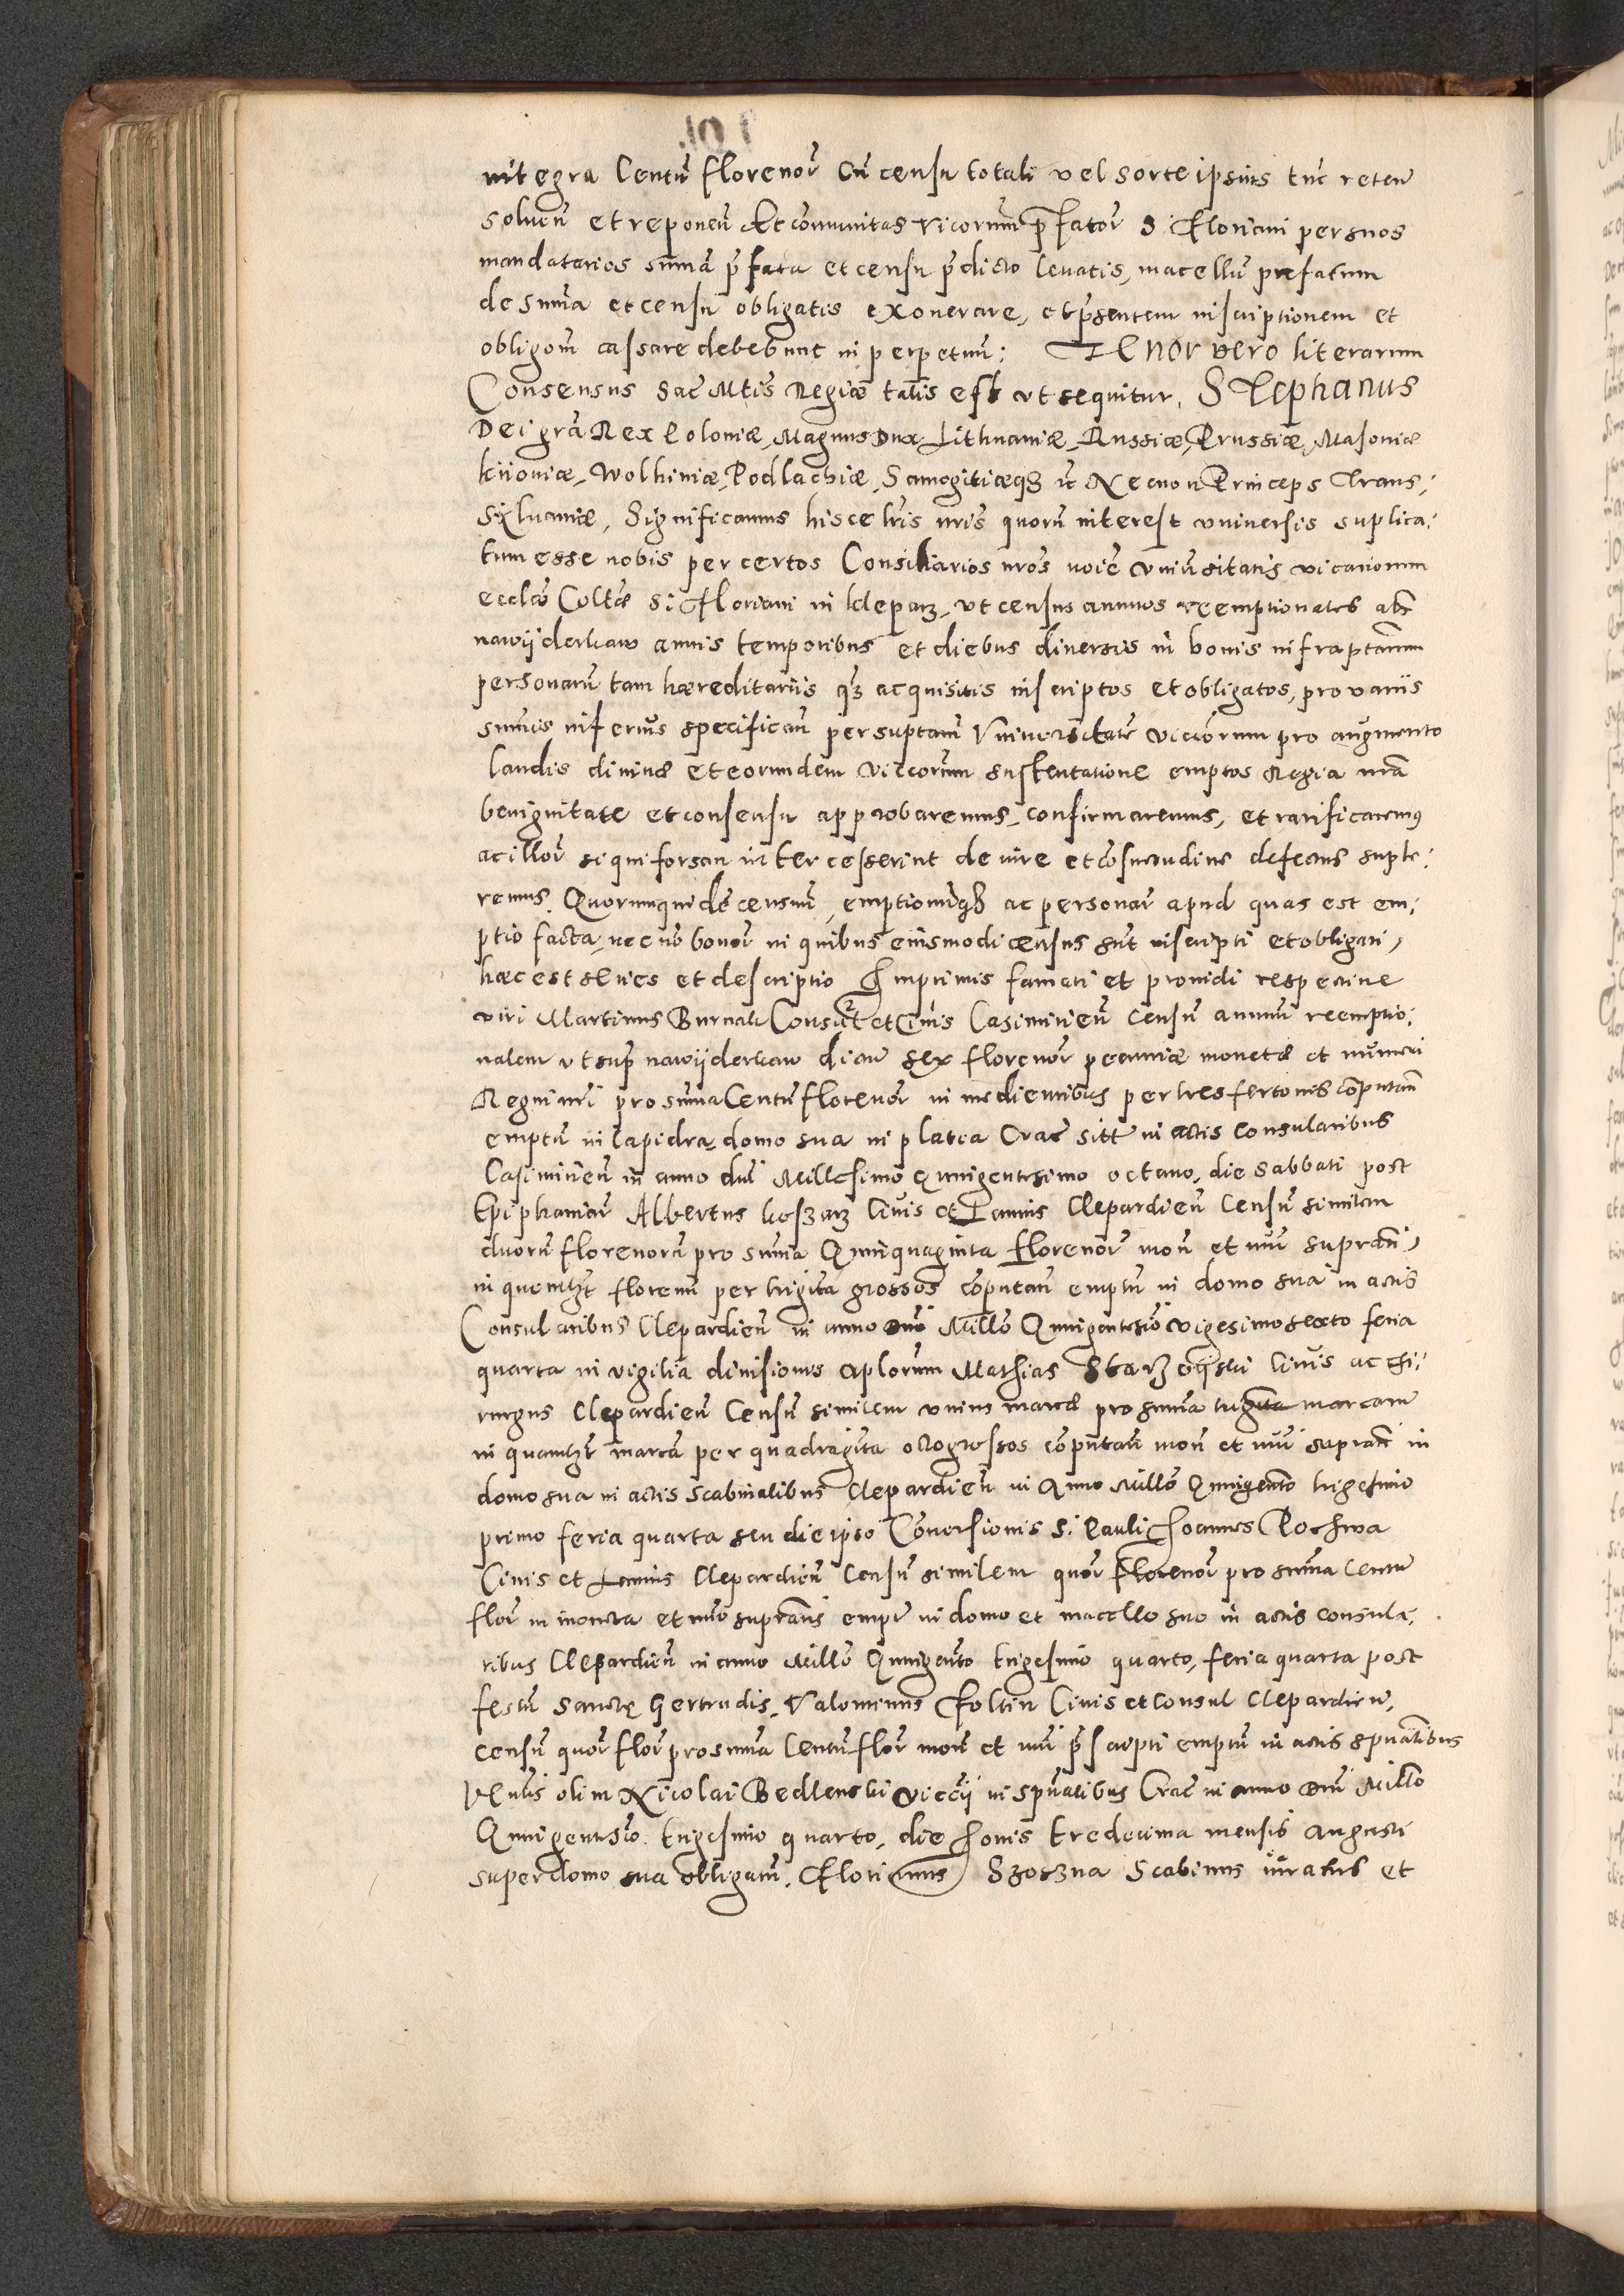 integra Centũ Florenoꝝ Cũ censu totali vel sorte ipsius tũc reten̄
soluen̄ et reponen̄ Et com̄unitas vicoriũm p̄fatoꝝ S: Floriani per suos
mandatarios sum̄a p̄fata et censu p̄dicto leuatis, macellũ prefatum
de sum̄a et censu obligatis exonerare, et p̄sentem inscriptionem et
obligoẽm cassare debebunt in perpetuũ: Tenor vero literarum
Consensus Sac̄ Mtis Regiae talis est vt sequitur. Stephanus
Dei grã Rex Poloniæ, Magnus Dux Lithuaniæ, Russiæ, Prussiæ, Masouiæ
Kiiouiæ, Wolhiniæ, Podlachiæ, Samogitiæqȝ ꝛc Necnon Princeps Trans:
Siluaniæ, Significamus hisce lr̃is nr̃is quorũ interest vniuersis suplica:
tum esse nobis per certos Consiliarios nr̃os noĩe vniuersitatis vicariorum
eccl̃ae Coll̃tae S: Floriani in Kleparz, vt census annuos reemptionales al̃s
nawyderkaw annis temporibus et diebus diuersis in bonis infrãptarum
personarũ tam hæreditariis qȝ acquisitis inscriptos et obligatos, pro variis
sum̄is inferius specifican̄ per suptam̄ Vniuersitatẽ viccorum pro augmento
laudis diuinæ et eorundem viccorum sustentatione emptos Regia nr̃a
benignitate et consensu approbaremus, confirmaremus, et ratificaremus
ac illoꝝ si qui forsan intercesserint de iure et cõsuetudine defectus suple:
remus. Quorumquidẽ censuũ, emptionũqȝ ac personaꝝ apud quas est em:
ptio facta, necnõ bonoꝝ in quibus eiusmodi census sũt inscripti et obligati,
hæc est series et descriptio Inprimis famati et prouidi respectiue
viri Martinus Burnak Consul et Ciuis Casimirien̄ Censũ annuũ reemptio:
nalem vt sup̄ nawyderkaw dictũ sex florenoꝝ pecuniæ monetæ et numeri
Regni nr̃i pro sum̄a Centũ florenoꝝ in medientibus per tres fertones cõputan̄
emptũ in lapidea domo sua in platea Crac̄ sitt̃ in actis Consularibus
Casimirien̄ in anno dñi Millesimo Quingentesimo octauo, die Sabbati post
Epiphaniaꝝ Albertus koszarz Ciuis et Lanius Clepardien̄ Censũ similem
duorũ florenorũ pro sum̄a Quinquaginta florenoꝝ mon̄ et nũ supran̄,
in quemlȝt florenũ per triginta grossos cõputan̄ emptũ in domo sua in actis
Consularibus Clepardien̄ in anno dñi Millõ Quingentesĩo vigesimosexto feria
quarta in vigilia diuisionis aplorum Mathias Starzowski Ciuis ac chi:
rurgus Clepardien̄ Censũ similem vnius marcæ pro sum̄a triginta marcarũ
in quamlȝt marcã per quadraginta octo grossos cõputan̄ mon̄ et nũ supran̄ in
domo sua in actis Scabinalibus Clepardien̄ in Anno Millõ Quingentõ trigesimo
primo feria quarta seu die ipso Cõuersionis S: Pauli Ioannes Pochwa
Ciuis et Lanius Clepardien̄ Censũ similem quoꝝ Florenoꝝ pro sum̄a Centũ
floꝝ in moneta et nũro suprãnis emptũ in domo et macello suo in actis consula:
ribus Clepardien̄ in anno Millõ Quingentõ trigesimo quarto, feria quarta post
festũ Sanctę Gertrudis, Valentinus Foltin Ciuis et Consul Clepardien̄,
Censũ quoꝝ floꝝ pro sum̄a Centũ floꝝ mon̄ et nũi p̄scripti emptũ in actis spũalibus
Venlis olim Nicolai Bedlenski viccij in spũalibus Crac̄ in anno dñi Millõ
Quingentesĩo trigesimo quarto, die Iouis tredecima mensis Augusti
super domo sua obligatũ. Florianus Szoszna Scabinus iuratus et